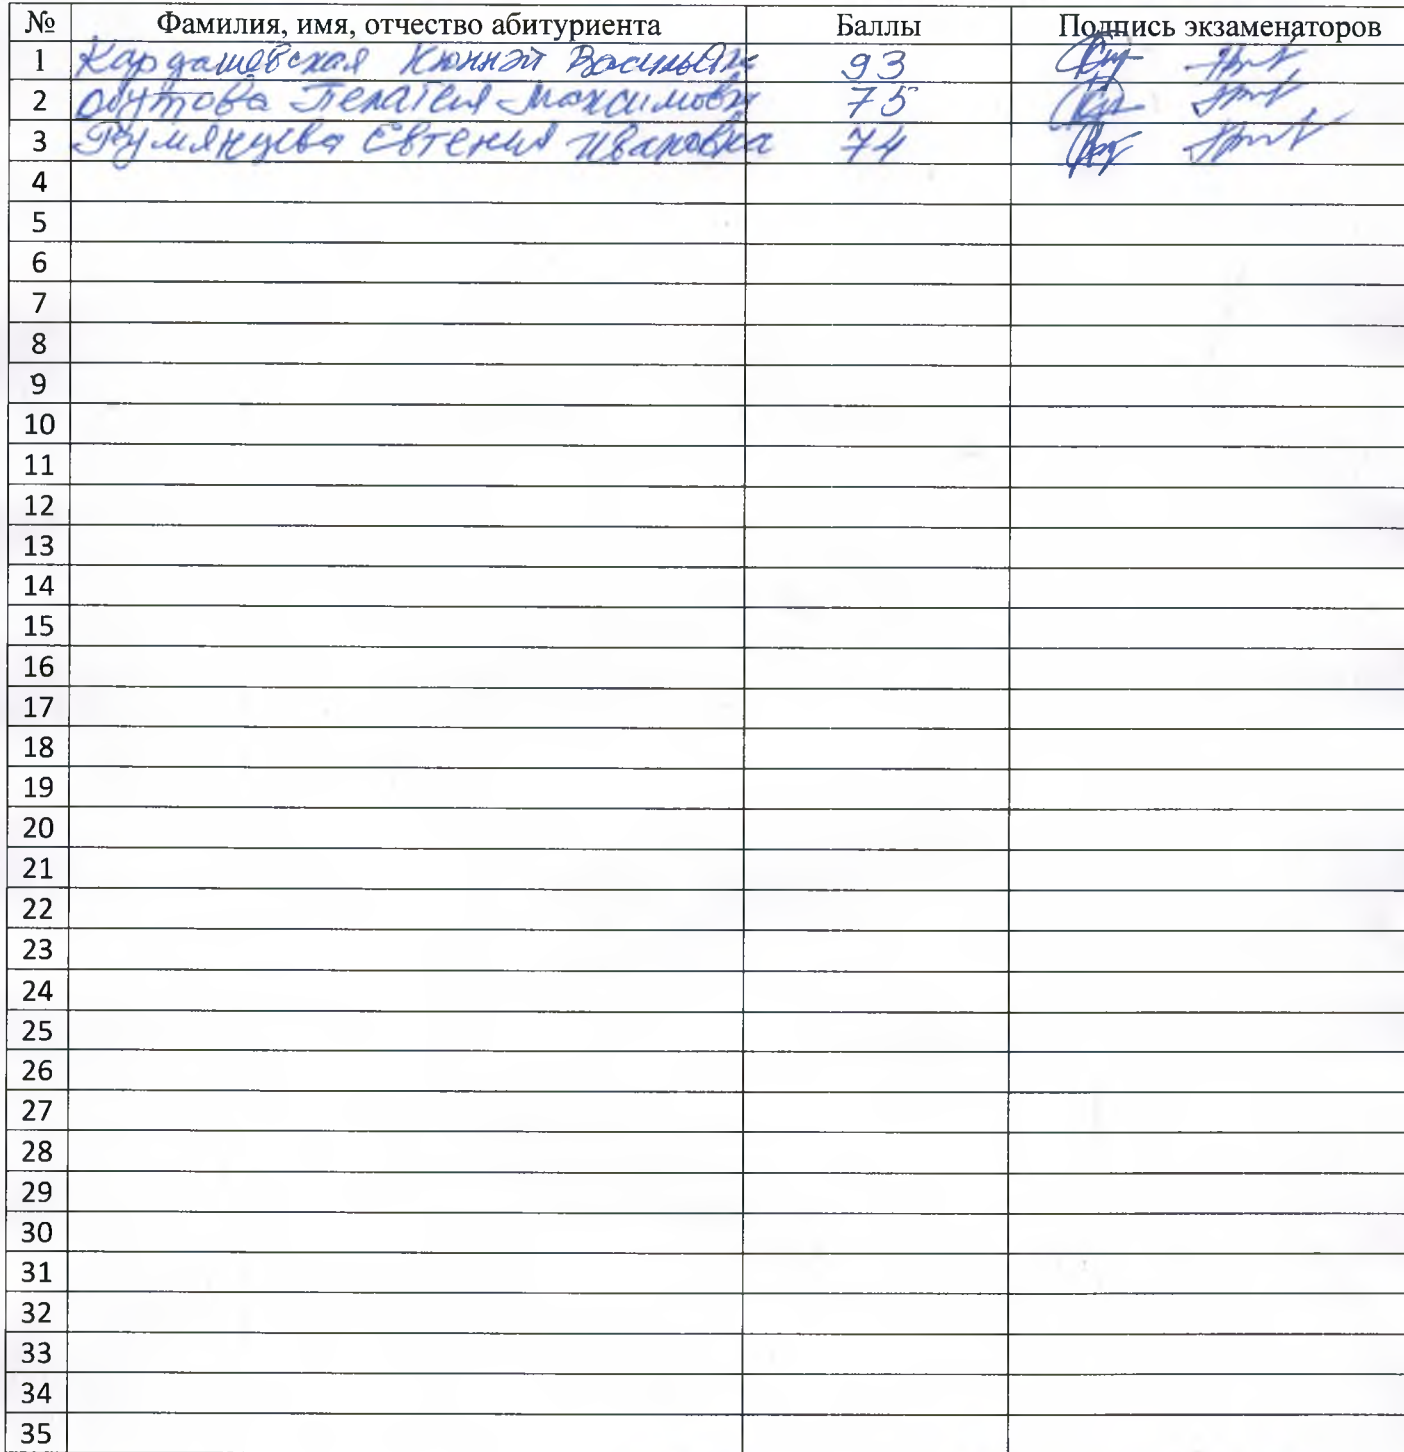 № Фамилия, имя, отчество абитуриента Баллы Подпись экзаменаторов
1 Кардашевская Кюннэй Васильевн 93
2 Обутова Пелагея Максимовн 75
3 Румянцева Евгения Ивановна 74
4
5
6
7
8
9
10
11
12
13
14
15
16
17
18
19
20
21
22
23
24
25
26
27
28
29
30
31
32
33
34
35